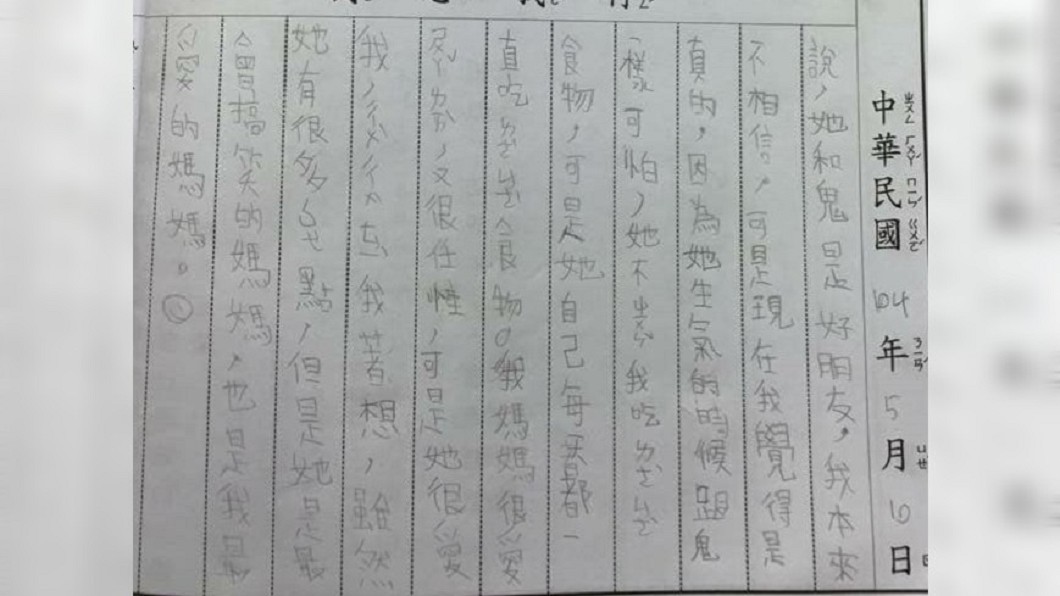 中華民國104年5月10日
說,她和鬼是好朋友,我本來
不相信,可是現在我覺得是
真的,因為她生氣的時候跟鬼
一樣可怕,她不ㄓㄨㄣˇ我吃ㄌㄜˋㄙㄜˋ
食物,可是她自己每天都一
直吃ㄌㄜˋㄙㄜˋ食物。我媽媽很愛
,又很任性,可是她很愛
我,我著想,雖然
她有很多點,但是她是最
會搞笑的媽媽,也是我最
心愛的媽媽。